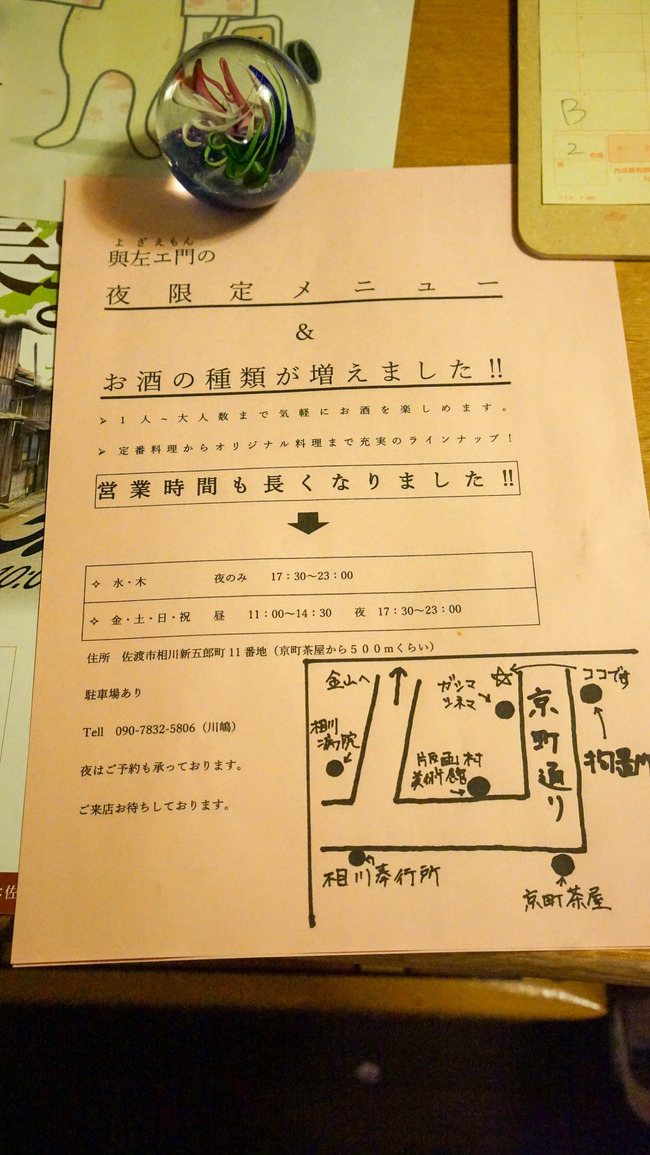 B
2
名様
よざえもん
與左エ門の
夜限定メニュー
&
お酒の種類が増えました!!
➢ 1人~大人数まで気軽にお酒を楽しめます。
➢ 定番料理からオリジナル料理まで充実のラインナップ!
営業時間も長くなりました!!
✧ 水・木 夜のみ 17:30~23:00
✧ 金・土・日・祝 昼 11:00~14:30 夜 17:30~23:00
住所 佐渡市相川新五郎町11番地(京町茶屋から500mくらい)
駐車場あり
Tell 090-7832-5806(川嶋)
夜はご予約も承っております。
ご来店お待ちしております。
金山へ
ガシマ
シネマ
ココです
京町通り
相川
病院
美術館
相川奉行所
京町茶屋